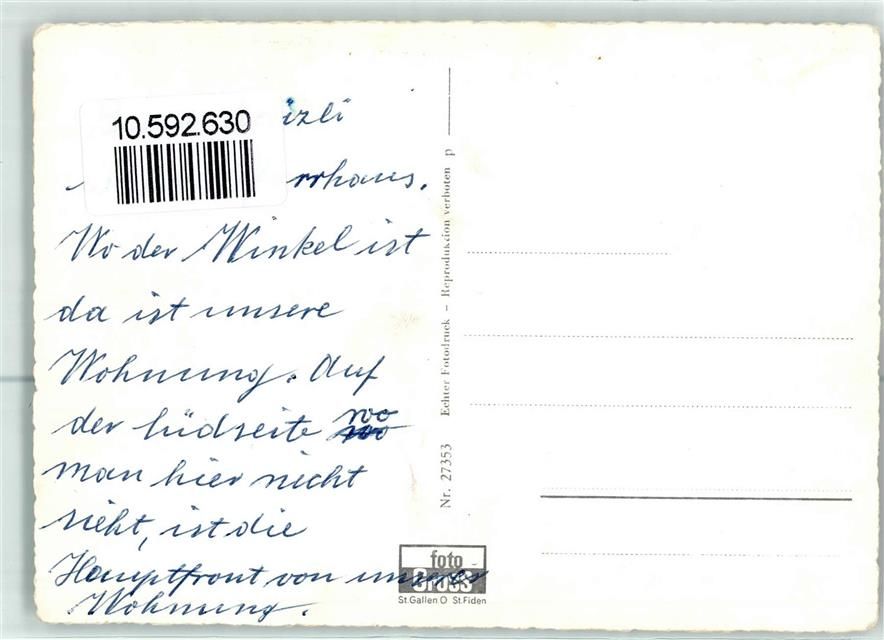 10.592.630
izli
rrhaus.
Wo der Winkel ist
da ist unsere
Wohnung. Auf
der Südseite wo
man hier nicht
sieht, ist die
Hauptfront von unserer
Wohnung.
Nr. 27353 Echter Fotodruck – Reproduktion verboten p
foto
Gross
St. Gallen O St. Fiden